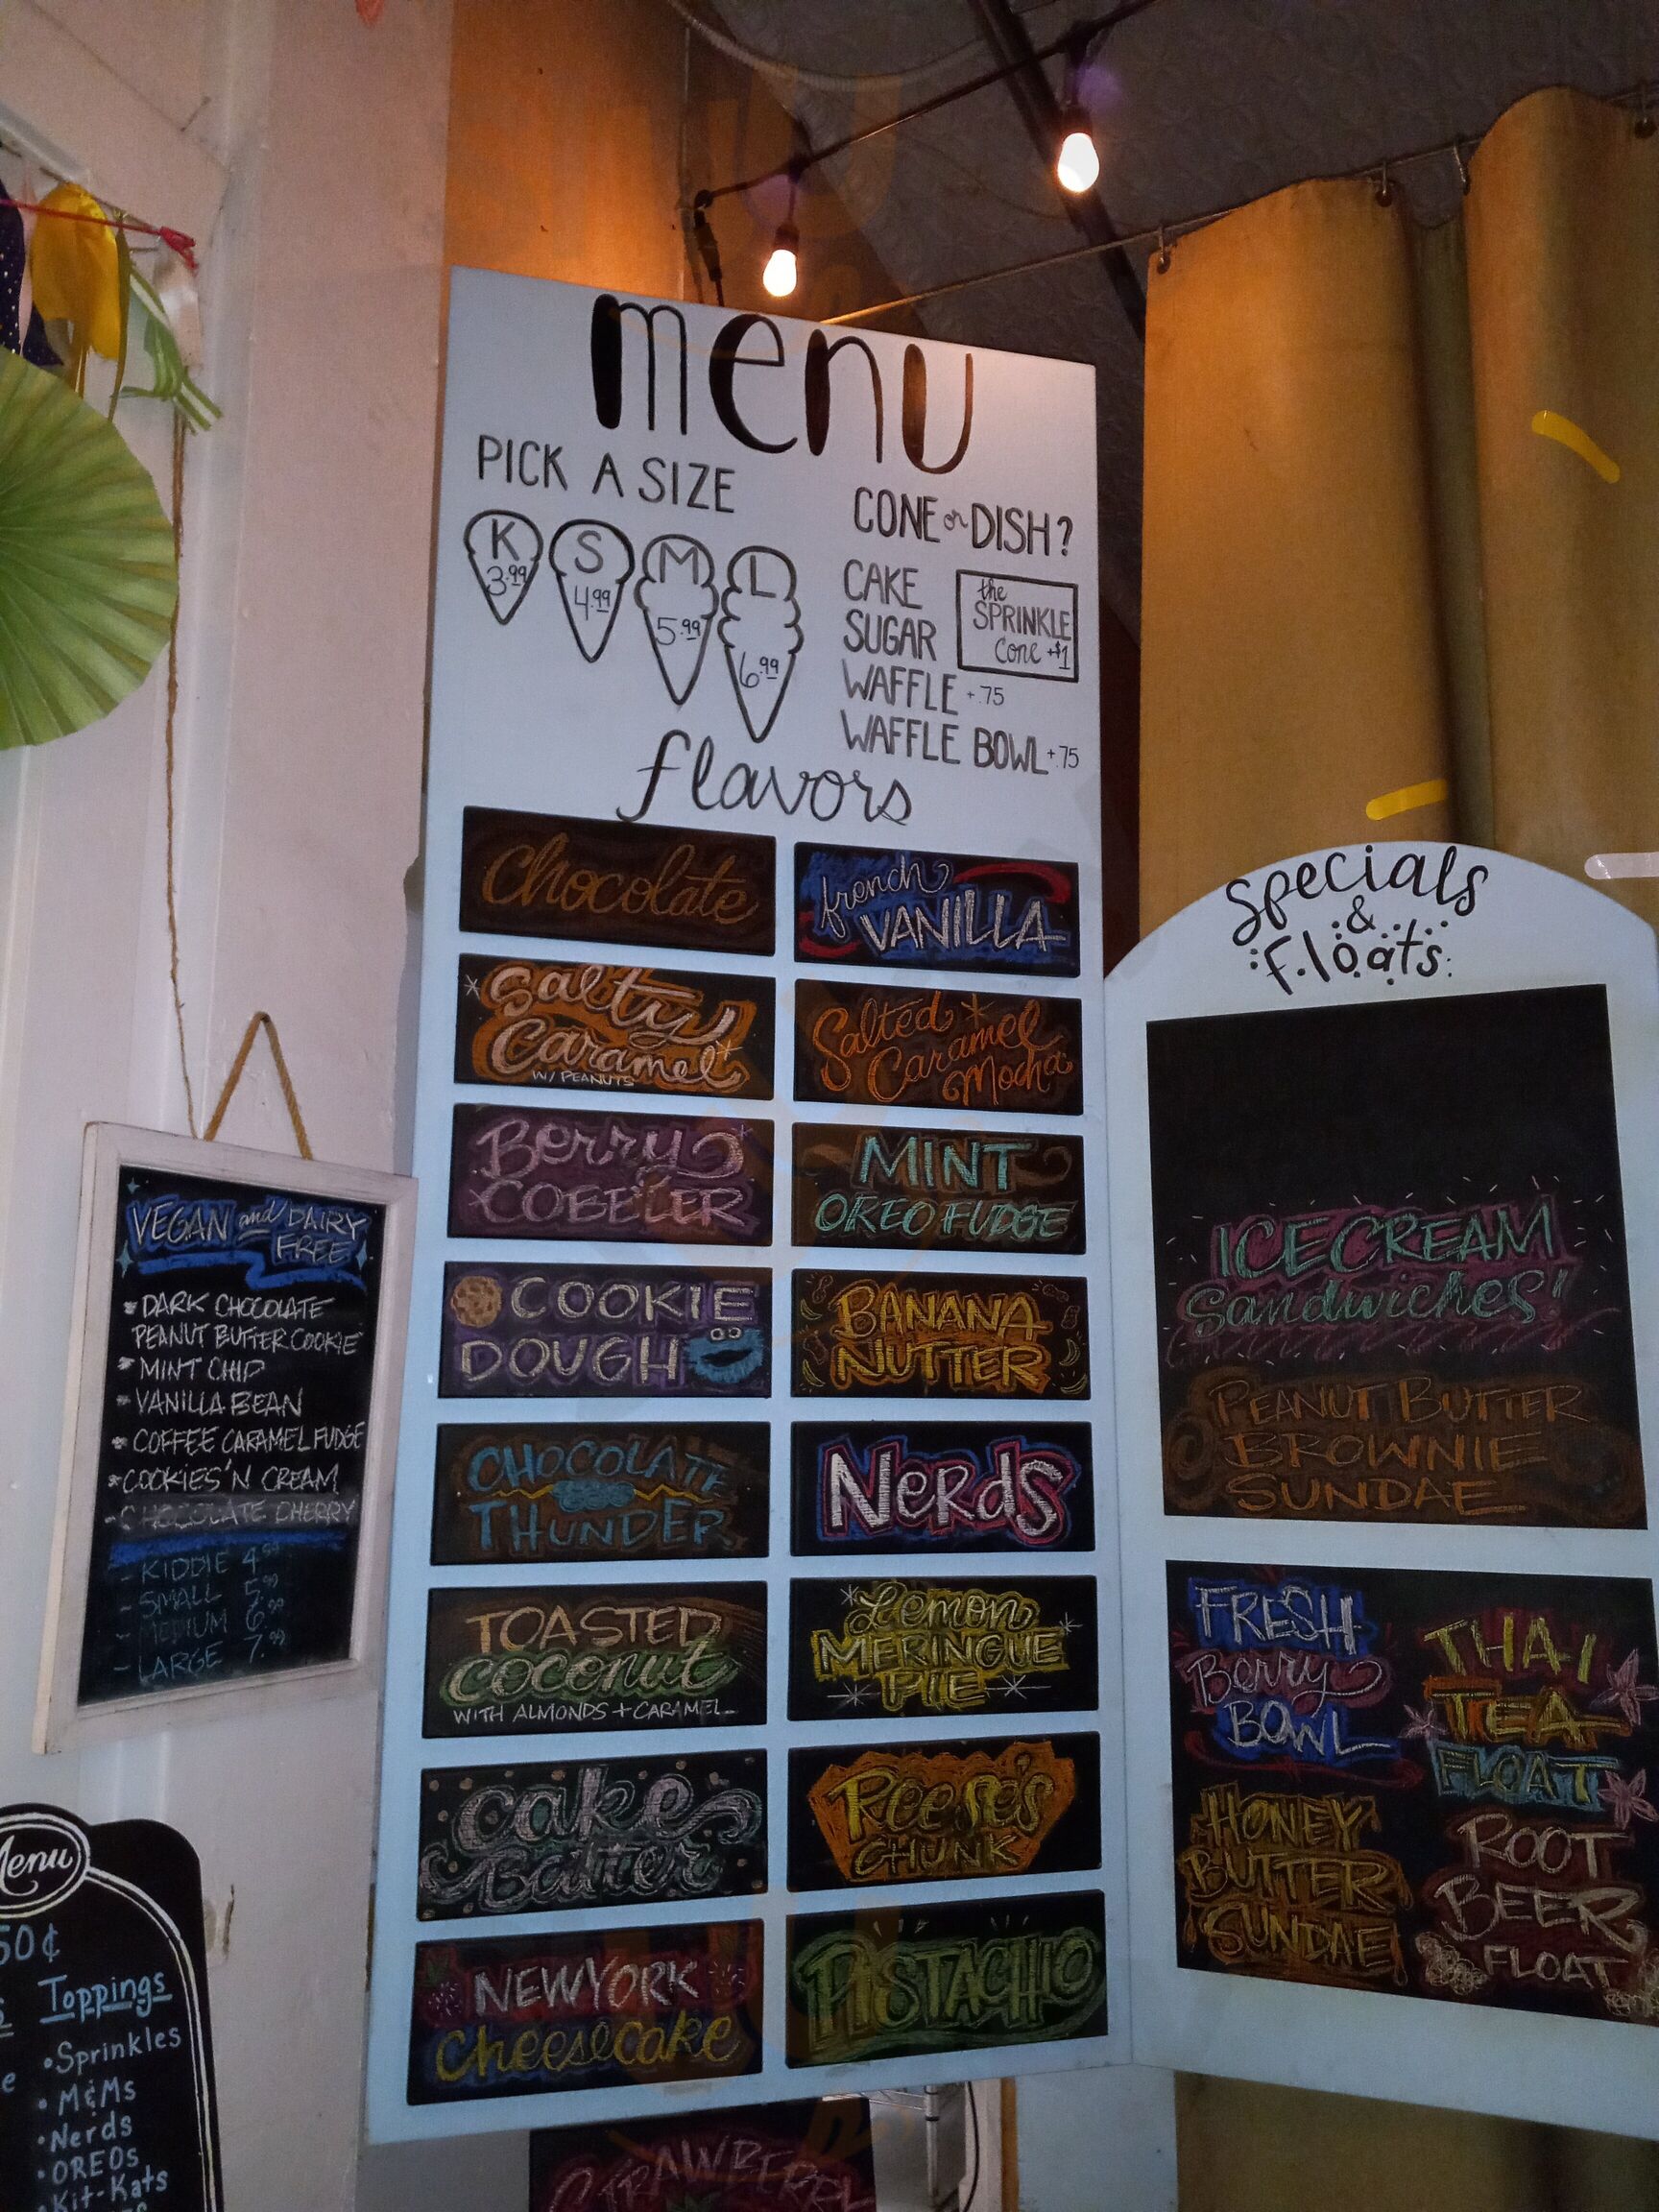 menu
PICK A SIZE
K
3.99
S
4.99
M
5.99
L
6.99
CONE or DISH?
CAKE
SUGAR
WAFFLE +.75
WAFFLE BOWL +.75
the
SPRINKLE
Cone +$1
flavors
Chocolate
french
VANILLA
Salty
Caramel
W/ PEANUTS
Salted
Caramel
Mocha
Berry
COBBLER
MINT
OREO FUDGE
COOKIE
DOUGH
BANANA
NUTTER
CHOCOLATE
THUNDER
NERDS
TOASTED
coconut
WITH ALMONDS + CARAMEL
Lemon
MERINGUE
PIE
cake
Batter
Reese's
CHUNK
NEW YORK
cheesecake
PISTACHIO
STRAWBERRY
Specials
&
Floats
ICECREAM
Sandwiches!
PEANUT BUTTER
BROWNIE
SUNDAE
FRESH
Berry
BOWL
THAI
TEA
FLOAT
HONEY
BUTTER
SUNDAE
ROOT
BEER
FLOAT
VEGAN and DAIRY
FREE
DARK CHOCOLATE
PEANUT BUTTER COOKIE
MINT CHIP
VANILLA BEAN
COFFEE CARAMEL FUDGE
COOKIES 'N CREAM
- CHOCOLATE CHERRY
- KIDDIE 4.99
- SMALL 5.99
- MEDIUM 6.99
- LARGE 7.99
Menu
50¢
Toppings
• Sprinkles
• M&Ms
• Nerds
• OREOs
• Kit-Kats